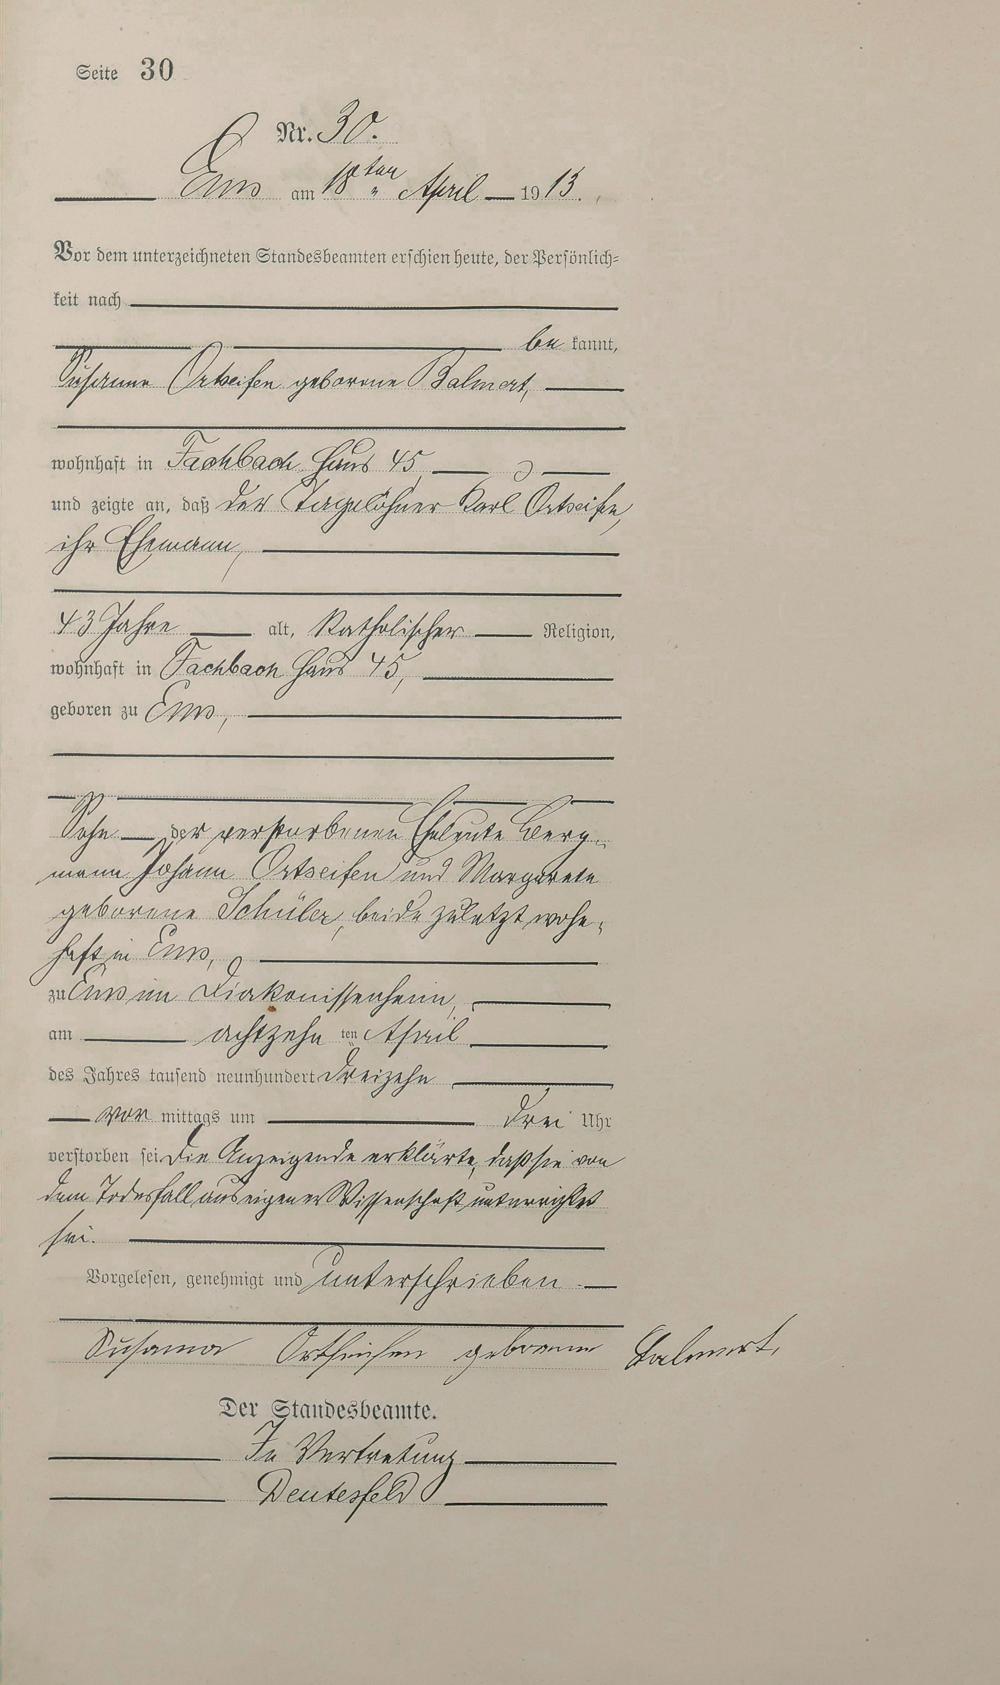 Seite 30
Nr. 30.
Ems am 18ten April 1913.
Vor dem unterzeichneten Standesbeamten erschien heute, der Persönlich=
keit nach
be kannt,
Susanna Ortseifen geborene Balmert,
wohnhaft in Fachbach Haus 45,
und zeigte an, daß der Tagelöhner Karl Ortseifen,
ihr Ehemann,
43 Jahre alt, katholischer Religion,
wohnhaft in Fachbach Haus 45,
geboren zu Ems,
Sohn der verstorbenen Eheleute Berg-
mann Johann Ortseifen und Margarete
geborene Schüler, beide zuletzt wohn-
haft in Ems,
zu Ems im Diakonissenheim,
am achtzehn ten April
des Jahres tausend neunhundert dreizehn
vor mittags um drei Uhr
verstorben sei. Die Anzeigende erklärte, daß sie von
dem Todesfall aus eigener Wissenschaft unterrichtet
sei.
Vorgelesen, genehmigt und unterschrieben
Susanna Ortseifen geborene Balmert.
Der Standesbeamte.
In Vertretung
Deutesfeld